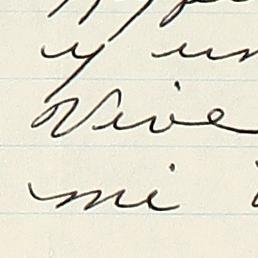 y un
Vive
mi